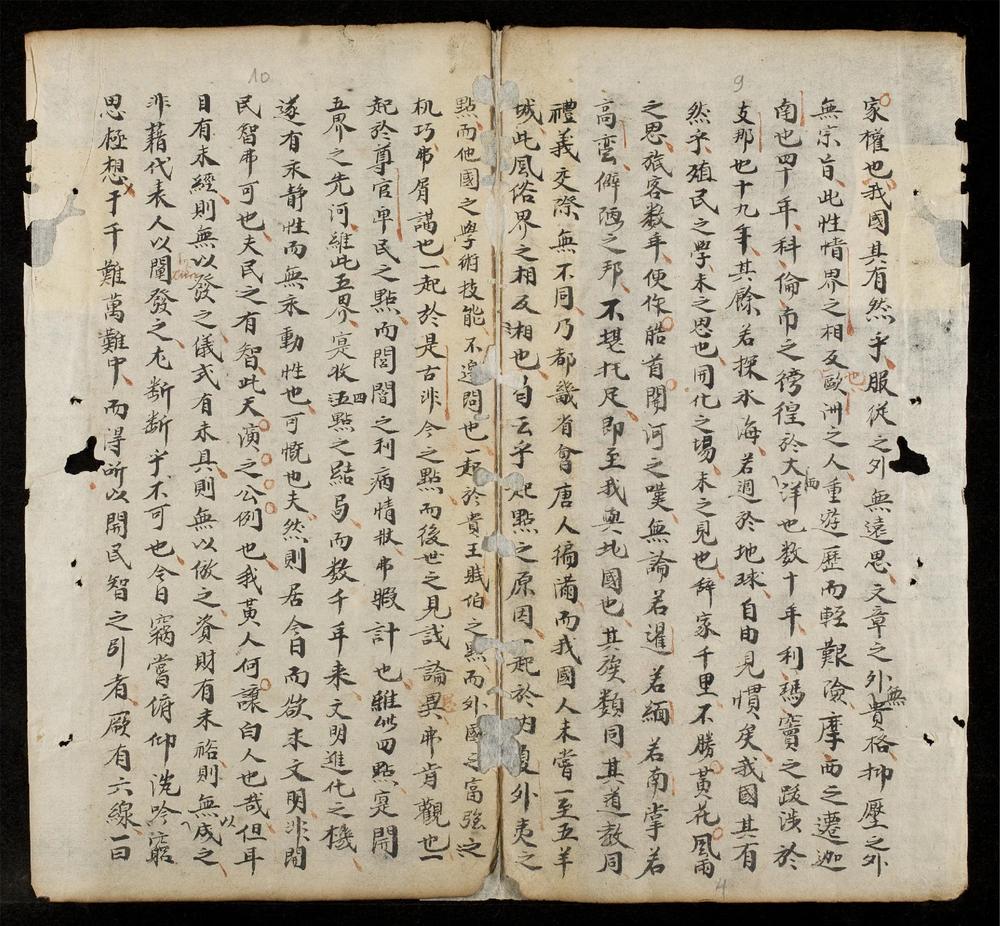 9
家權也我國其有然乎服從之外無遠思文章之外無貴格抑壓之外
無宗旨此性情界之相反也歐洲之人重遊歷而輕艱險摩西之遷迦
南也四十年科倫布之徬徨於大西洋也数十年利瑪竇之跋涉於
支那也十九年其餘若探氷海若週於地球自由見慣矣我國其有
然乎殖民之學未之思也開化之場未之見也辞家千里不勝黃花風雨
之思旅客数年便作皓首關河之嘆無論若暹若緬若南掌若
高蛮僻陋之邦不堪托足即至我與北國也其族類同其道教同
禮義交際無不同乃都畿省會唐人徧滿而我國人未嘗一至五羊
城此風俗界之相反湘也自云乎起點之原因一起於內夏外夷之
10
點而他國之學術技能不遑問也一起於貴王賎伯之點而外國之富強之
机巧弗屑講也一起於是古非今之點而後世之見識論異弗肯觀也一
起於尊官卑民之點而閭閻之利病情狀弗暇計也雖此四點寔開
五界之先河維此五界寔收四點之結局而数千年来文明進化之機
遂有永静性而無永動性也可慨也夫然則居今日而欲求文明非開
民智弗可也夫民之有智此天演之公例也我黃人何讓白人也哉但耳
目有未經則無以發之儀式有未具則無以倣之資財有未裕則無以成之
非藉代表人以闡發之尤断断乎不可也今日竊嘗俯仰沈吟窮
思極想千千難萬難中而得所以開民智之引者厥有六線一曰
4